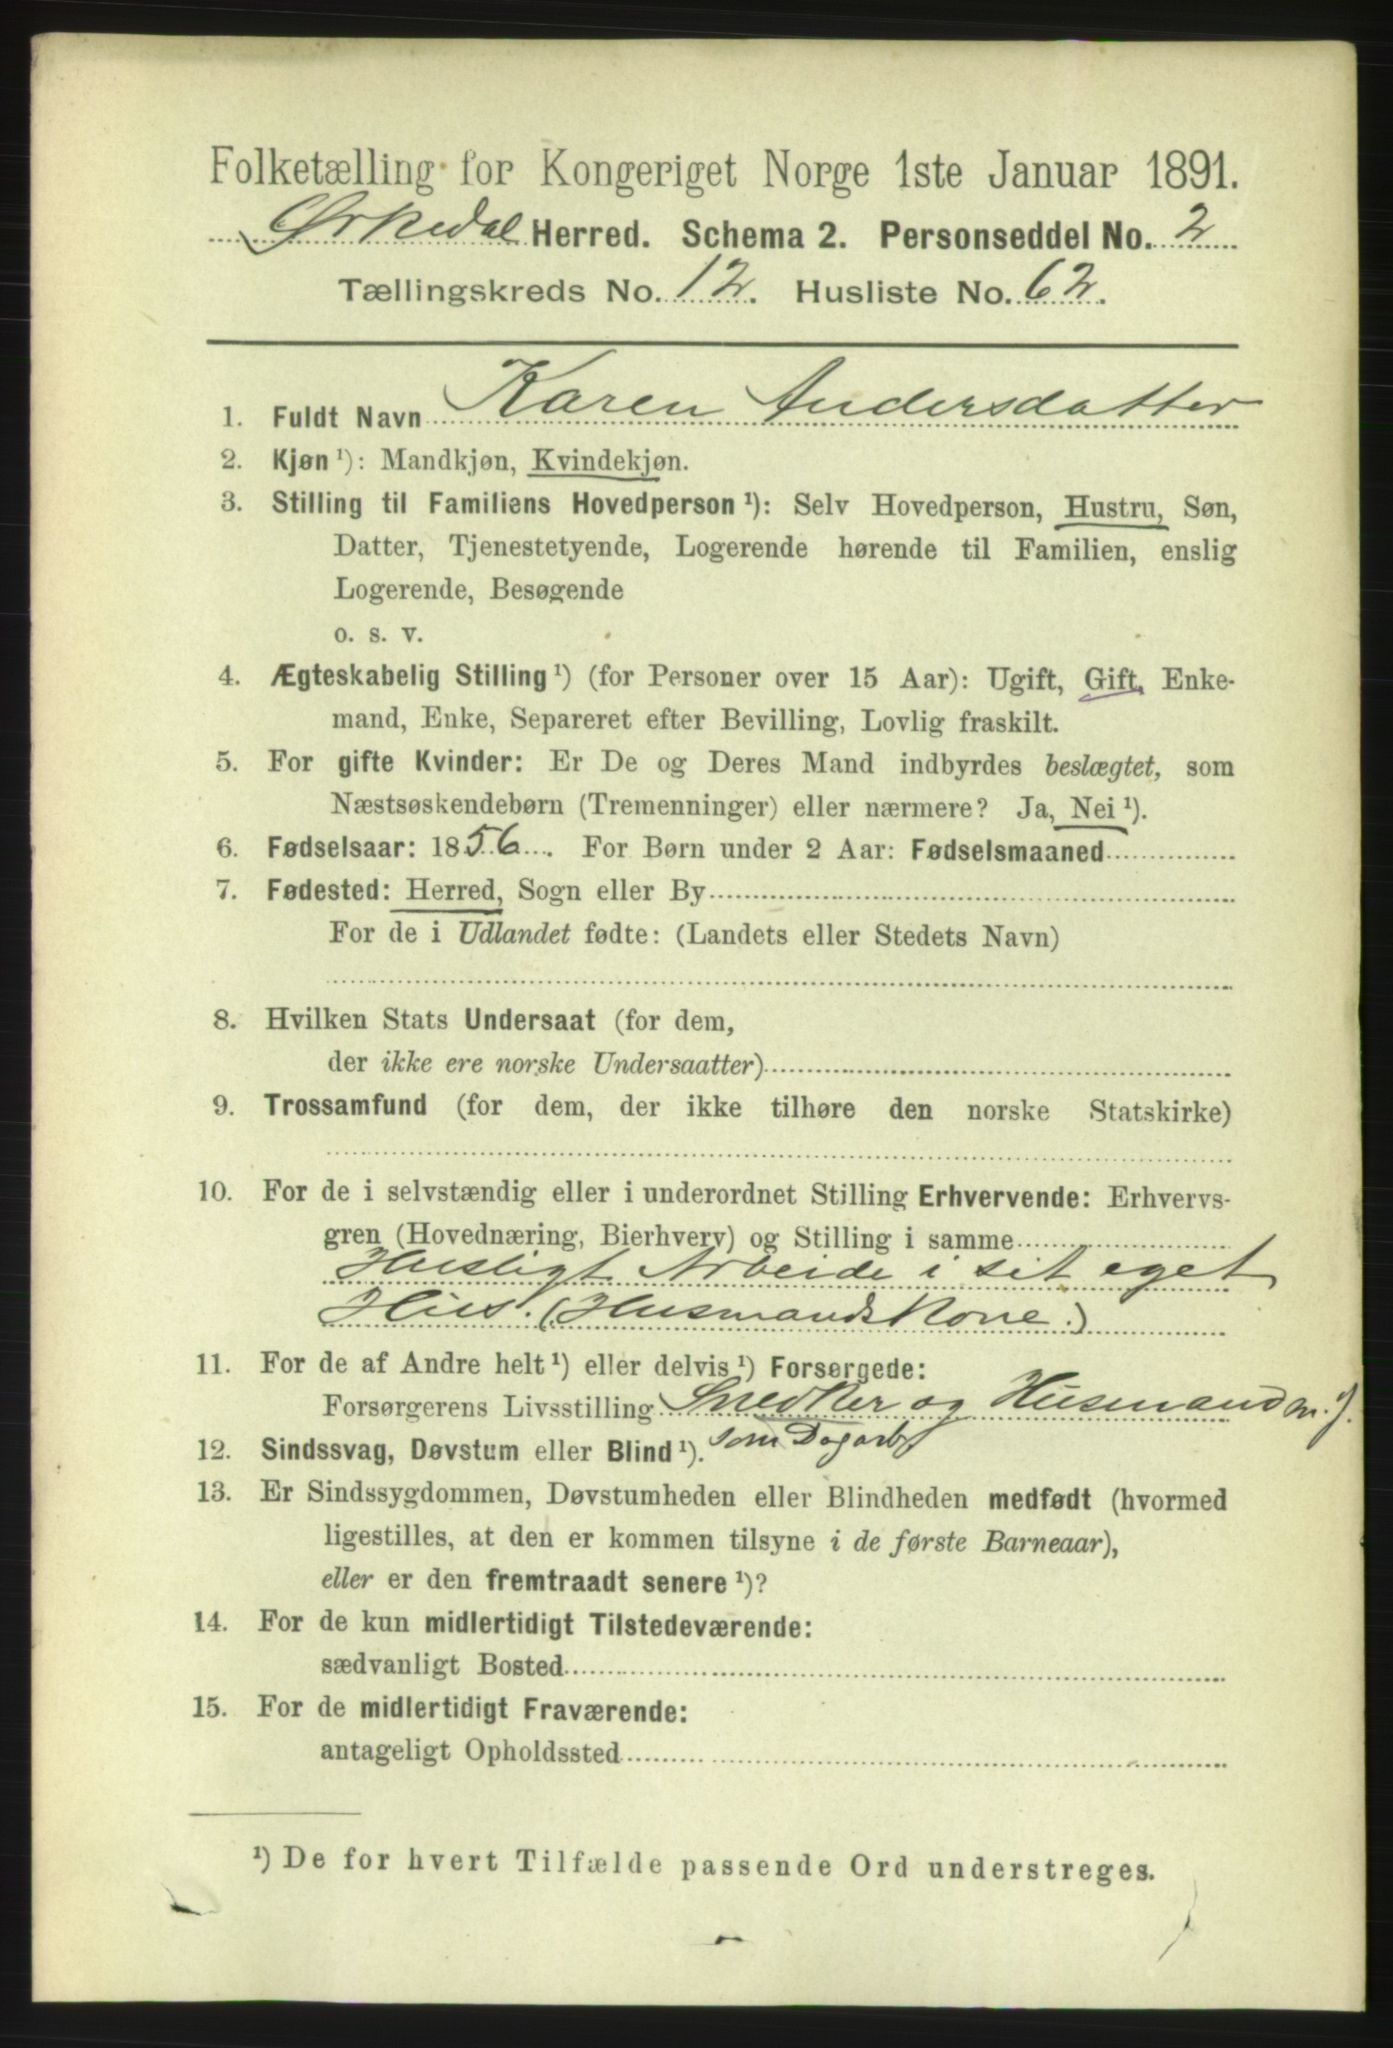 Folketælling for Kongeriget Norge 1ste Januar 1891.
Ørkedal Herred. Schema 2. Personseddel No. 2
Tællingskreds No. 12. Husliste No. 62.
1. Fuldt Navn Karen Andersdatter
2. Kjøn ¹): Mandkjøn, Kvindekjøn.
3. Stilling til Familiens Hovedperson ¹): Selv Hovedperson, Hustru, Søn,
Datter, Tjenestetyende, Logerende hørende til Familien, enslig
Logerende, Besøgende
o. s. v.
4. Ægteskabelig Stilling ¹) (for Personer over 15 Aar): Ugift, Gift, Enke-
mand, Enke, Separeret efter Bevilling, Lovlig fraskilt.
5. For gifte Kvinder: Er De og Deres Mand indbyrdes beslægtet, som
Næstsøskendebørn (Tremenninger) eller nærmere? Ja, Nei ¹).
6. Fødselsaar: 1856. For Børn under 2 Aar: Fødselsmaaned
7. Fødested: Herred, Sogn eller By
For de i Udlandet fødte: (Landets eller Stedets Navn)
8. Hvilken Stats Undersaat (for dem,
der ikke ere norske Undersaatter)
9. Trossamfund (for dem, der ikke tilhøre den norske Statskirke)
10. For de i selvstændig eller i underordnet Stilling Erhvervende: Erhvervs-
gren (Hovednæring, Bierhverv) og Stilling i samme
Husligt Arbeide i sit eget
Hus. (Husmandskone.)
11. For de af Andre helt ¹) eller delvis ¹) Forsørgede:
Forsørgerens Livsstilling Snedker og Husmand m. J.
som Dagarb
12. Sindssvag, Døvstum eller Blind ¹).
13. Er Sindssygdommen, Døvstumheden eller Blindheden medfødt (hvormed
ligestilles, at den er kommen tilsyne i de første Barneaar),
eller er den fremtraadt senere ¹)?
14. For de kun midlertidigt Tilstedeværende:
sædvanligt Bosted
15. For de midlertidigt Fraværende:
antageligt Opholdssted
¹) De for hvert Tilfælde passende Ord understreges.